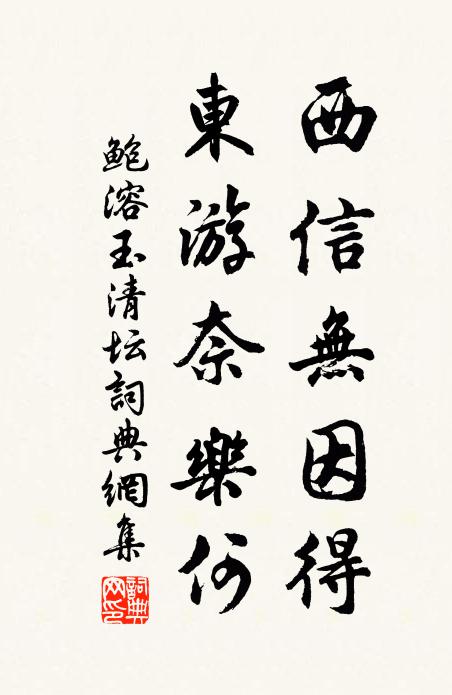 西信無因得
東游奈樂何
鲍溶玉清坛詞典網集
詞典
网印